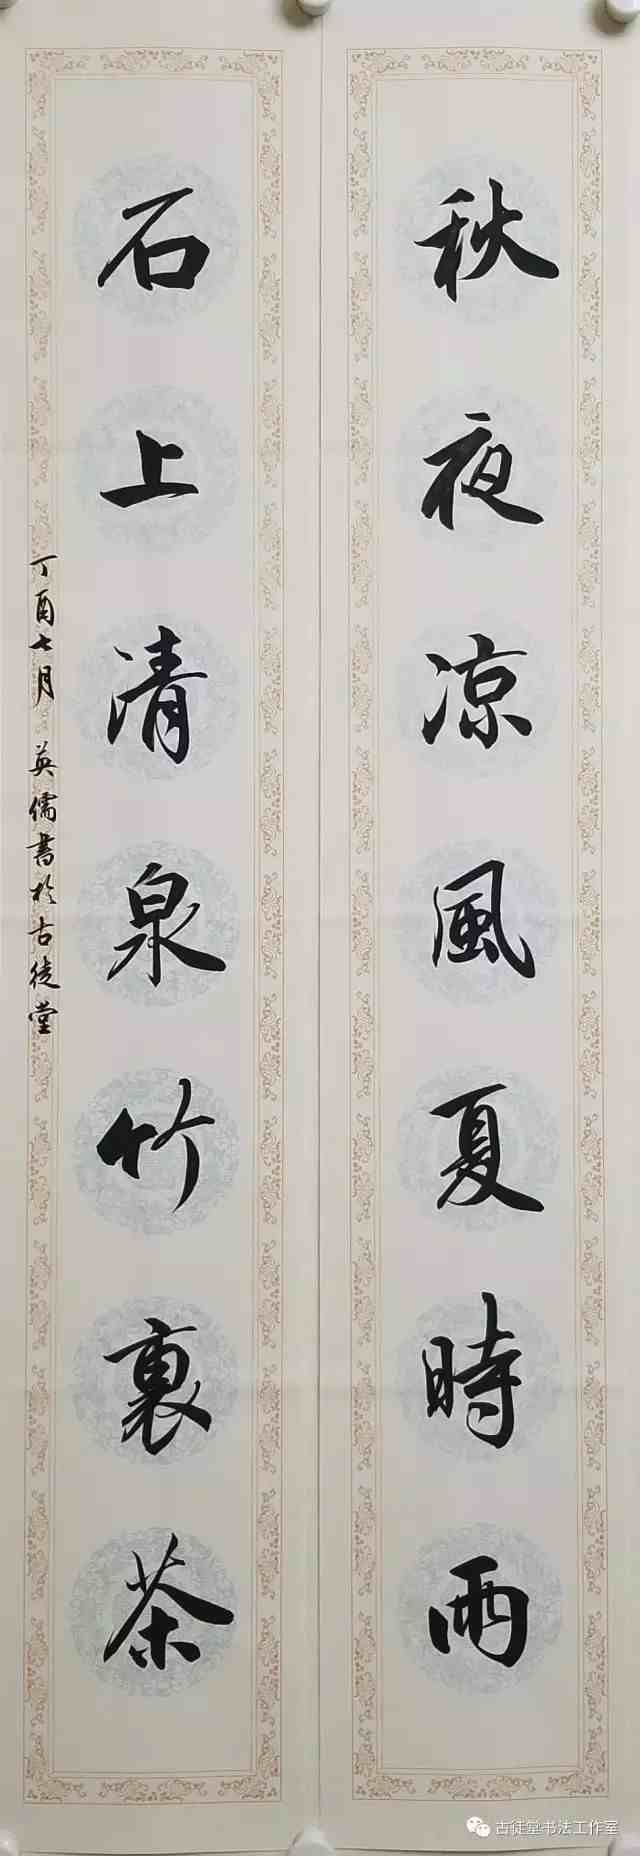 秋夜凉風夏時雨
石上清泉竹裏茶
丁酉七月 英儒書於古徒堂
古徒堂书法工作室